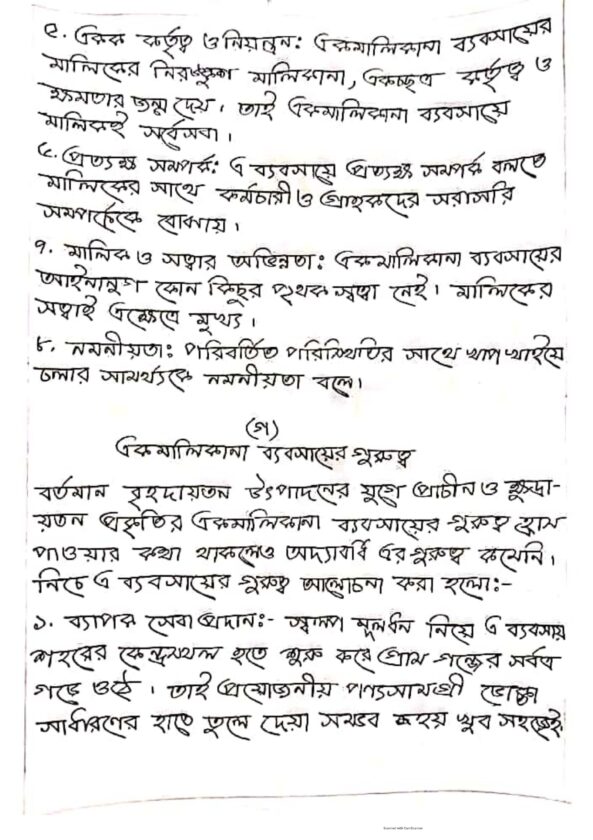 ৫. একক কর্তৃত্ব ও নিয়ন্ত্রন: একমালিকানা ব্যবসায়ের
মালিকের নিরঙ্কুশ মালিকানা, একচ্ছত্র কর্তৃত্ব ও
ক্ষমতার জন্ম দেয়। তাই একমালিকানা ব্যবসায়ে
মালিকই সর্বেসবা।
৬. প্রত্যক্ষ সম্পর্ক: এ ব্যবসায়ে প্রত্যক্ষ সম্পর্ক বলতে
মালিকের সাথে কর্মচারী ও গ্রাহকদের সরাসরি
সম্পর্ককে বোঝায়।
৭. মালিক ও সত্বার অভিন্নতা: একমালিকানা ব্যবসায়ের
আইনানুগ কোন কিছুর পৃথক স্বত্বা নেই। মালিকের
সত্বাই এক্ষেত্রে মূখ্য।
৮. নমনীয়তা: পরিবর্তিত পরিস্থিতির সাথে খাপ খাইয়ে
চলার সামর্থ্যকে নমনীয়তা বলে।
(গ)
একমালিকানা ব্যবসায়ের গুরুত্ব
বর্তমান বৃহদায়তন উৎপাদনের যুগে প্রাচীন ও ক্ষুদ্রা-
য়তন প্রকৃতির একমালিকানা ব্যবসায়ের গুরুত্ব হ্রাস
পাওয়ার কথা থাকলেও অদ্যাবধি এর গুরুত্ব কমেনি।
নিচে এ ব্যবসায়ের গুরুত্ব আলোচনা করা হলো:-
১. ব্যাপক সেবা প্রদান:- স্বল্প মূলধন নিয়ে এ ব্যবসায়
শহরের কেন্দ্রস্থল হতে শুরু করে গ্রাম গঞ্জের সর্বত্র
গড়ে ওঠে। তাই প্রয়োজনীয় পণ্যসামগ্রী ভোক্তা
সাধারণের হাতে তুলে দেয়া সম্ভব হয় খুব সহজেই